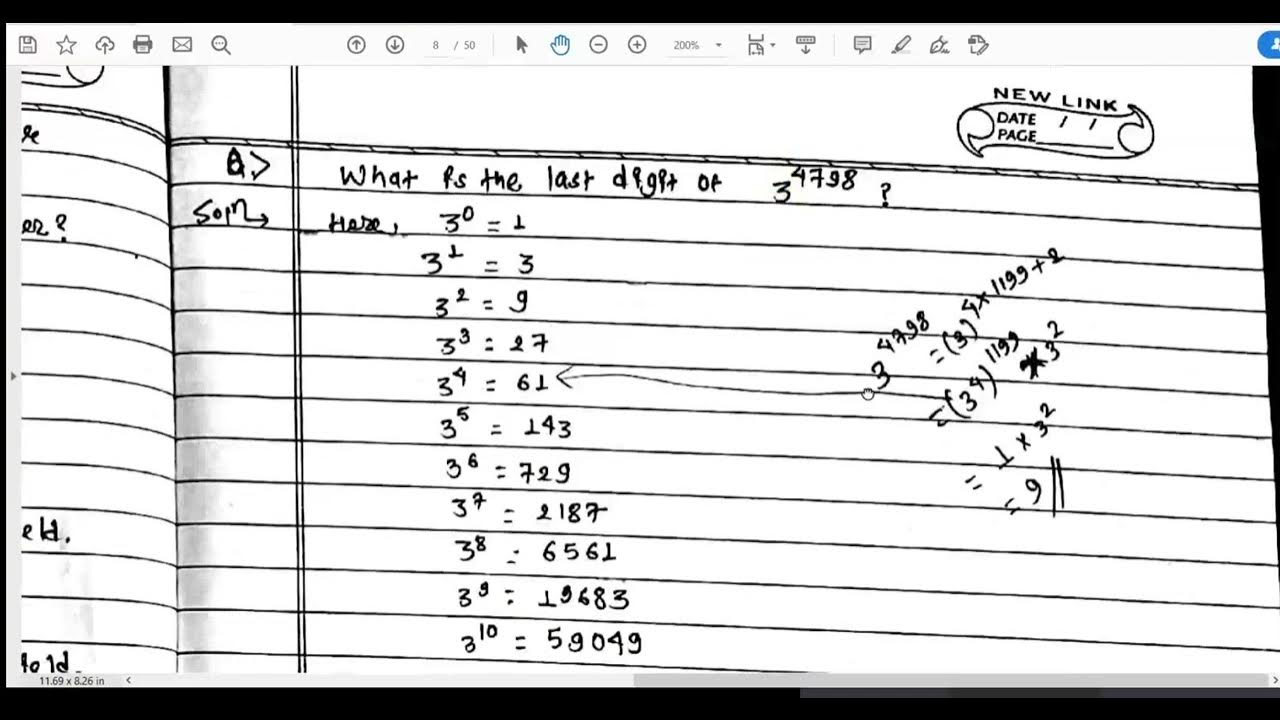 8 / 50
200%
NEW LINK
DATE / /
PAGE
Q.> What is the last digit of 3^4798 ?
Soln→ Here, 3^0 = 1
er?
3^1 = 3
3^2 = 9
3^3 = 27
3^4 = 61
3^5 = 143
3^6 = 729
3^7 = 2187
3^8 = 6561
3^9 = 19683
3^10 = 59049
3^4798 = (3)^4×1199+2
= (3^4)^1199 * 3^2
= 1 × 3^2
= 9
eld.
11.69 x 8.26 in